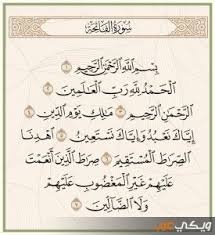 سُورَةُ الْفَاتِحَةِ
بِسْمِ اللَّهِ الرَّحْمَٰنِ الرَّحِيمِ ١
الْحَمْدُ لِلَّهِ رَبِّ الْعَالَمِينَ ٢
الرَّحْمَٰنِ الرَّحِيمِ ٣ مَالِكِ يَوْمِ الدِّينِ ٤
إِيَّاكَ نَعْبُدُ وَإِيَّاكَ نَسْتَعِينُ ٥ اهْدِنَا
الصِّرَاطَ الْمُسْتَقِيمَ ٦ صِرَاطَ الَّذِينَ أَنْعَمْتَ
عَلَيْهِمْ غَيْرِ الْمَغْضُوبِ عَلَيْهِمْ
وَلَا الضَّالِّينَ ٧
ويكي